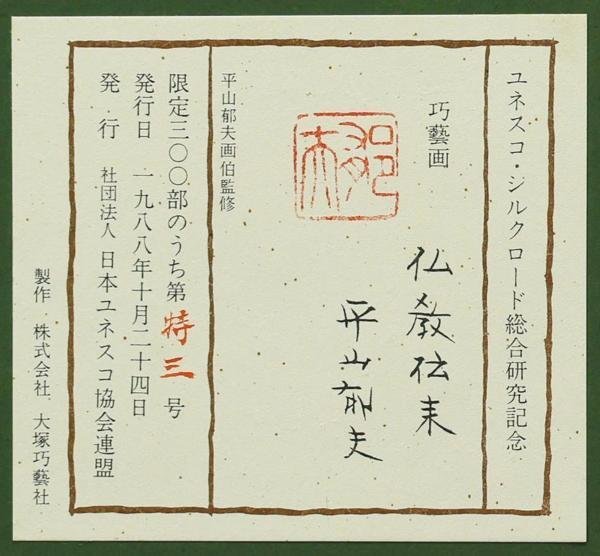 ユネスコ・シルクロード総合研究記念
巧藝画
仏教伝来
平山郁夫
郁夫
平山郁夫画伯監修
限定三〇〇部のうち第特三号
発行日 一九八八年十月二十四日
発行 社団法人 日本ユネスコ協会連盟
製作 株式会社 大塚巧藝社